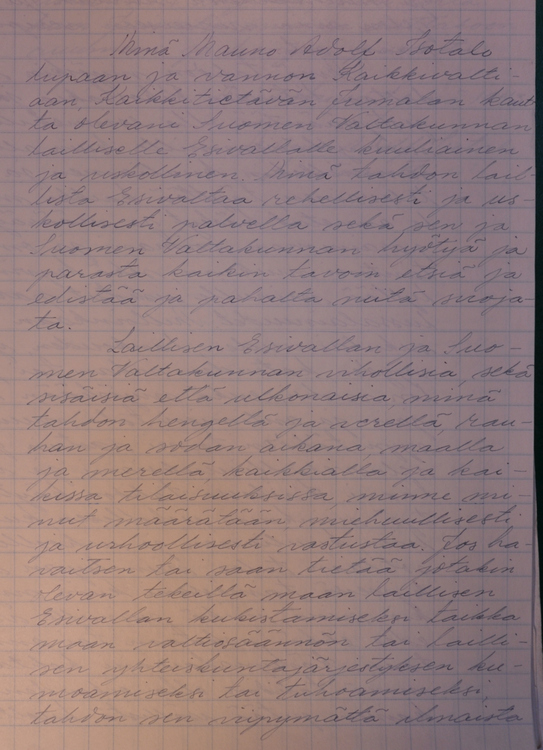 Minä Mauno Adolf Isotalo
lupaan ja vannon Kaikkivalti-
aan, Kaikkitietävän Jumalan kaut-
ta olevani Suomen Valtakunnan
lailliselle Esivallalle kuuliainen
ja uskollinen. Minä tahdon lail-
lista Esivaltaa rehellisesti ja us-
kollisesti palvella sekä sen ja
Suomen Valtakunnan hyötyä ja
parasta kaikin tavoin etsiä ja
edistää ja rahalta niitä suoja-
ta.
Laillisen Esivallan ja Suo-
men Valtakunnan vihollisia, sekä
sisäisiä että ulkonaisia minä
tahdon hengellä ja verellä, rau-
han ja sodan aikana, maalla
ja merellä, kaikkialla ja kai-
kissa tilaisuuksissa, minne mi-
nut määrätään miehuullisesti
ja urhoollisesti vastustaa. Jos ha-
vaitsen tai saan tietää jotakin
olevan tekeillä maan laillisen
Esivallan kukistamiseksi taikka
maan valtiosäännön tai lailli-
sen yhteiskuntajärjestyksen ku-
moamiseksi tai tuhoamiseksi,
tahdon sen viipymättä ilmaista